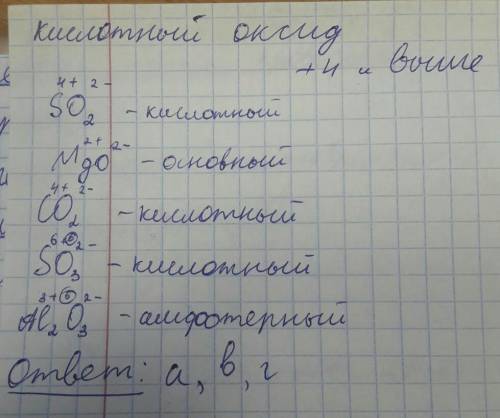 кислотный оксид
+4 и выше
4+ 2-
SO2 - кислотный
2+ 2-
MgO - основный
4+ 2-
CO2 - кислотный
6+ 6 2-
SO3 - кислотный
3+ 6 2-
Al2O3 - амфотерный
Ответ: а, в, г